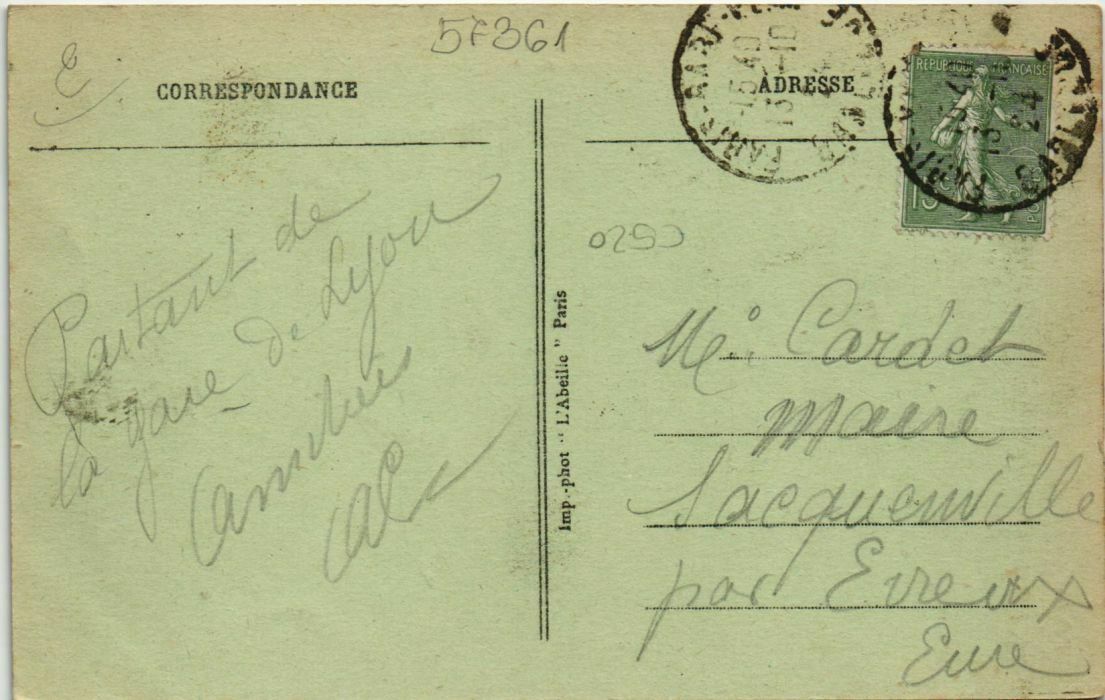 57361
E
CORRESPONDANCE
ADRESSE
REPUBLIQUE FRANÇAISE
15
C920
Partant de
la gare de Lyon
Amitiés
Imp.-phot " L'Abeille " Paris
Mr. Cardet
Maire
Sacquenville
par Evreux
Eure